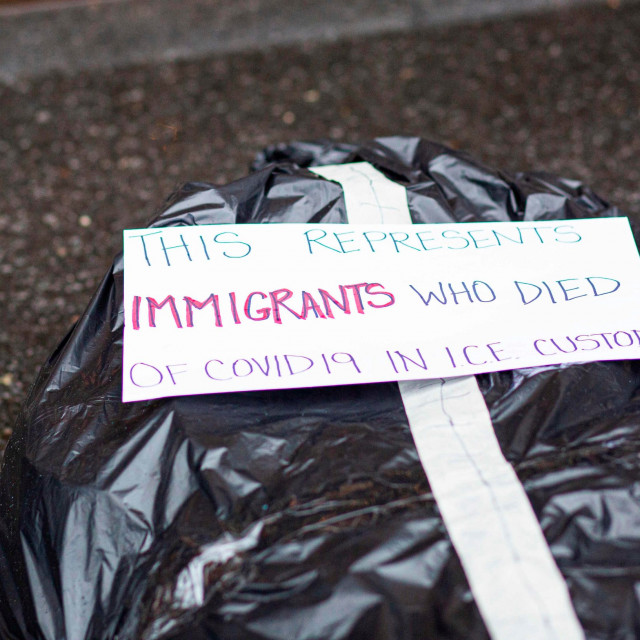 THIS REPRESENTS
IMMIGRANTS WHO DIED
OF COVID19 IN ICE CUSTO